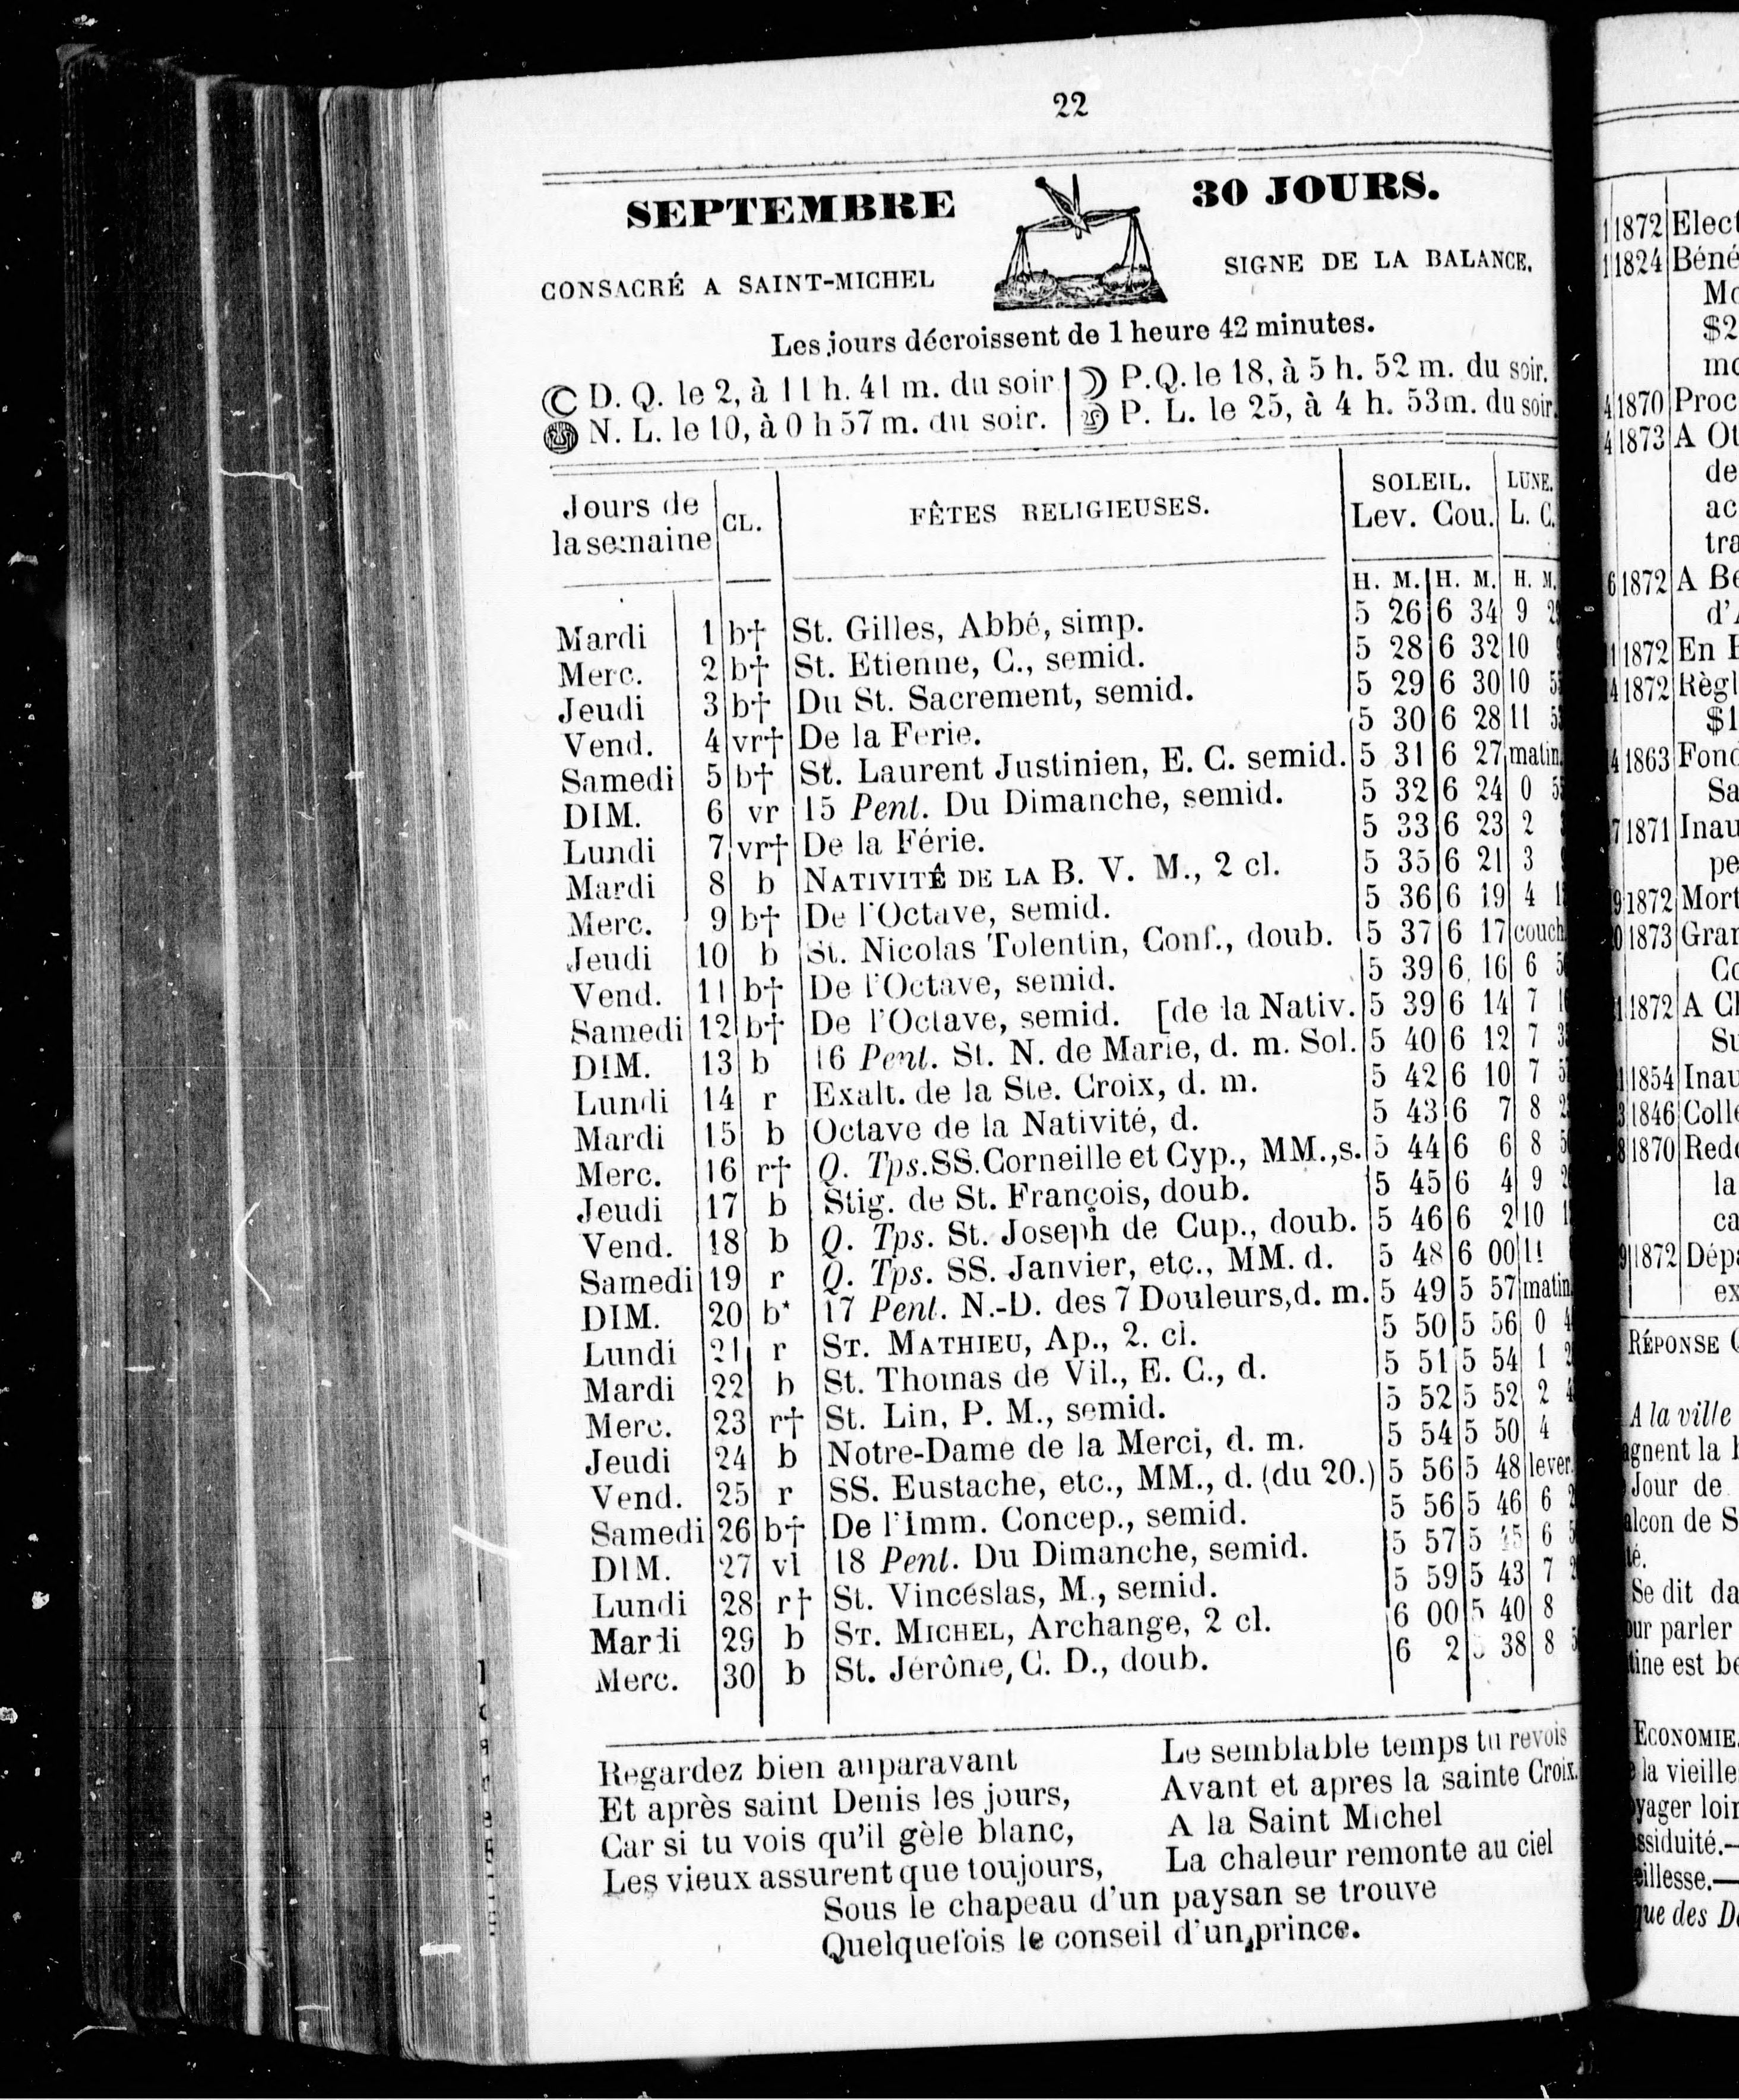 22
SEPTEMBRE 30 JOURS.
CONSACRÉ A SAINT-MICHEL SIGNE DE LA BALANCE.
Les jours décroissent de 1 heure 42 minutes.
D. Q. le 2, à 11 h. 41 m. du soir P.Q. le 18, à 5 h. 52 m. du soir.
N. L. le 10, à 0 h 57 m. du soir. P. L. le 25, à 4 h. 53m. du soir.
Jours de la semaine CL. FÊTES RELIGIEUSES. SOLEIL. Lev. Cou. LUNE. L. C.
H. M. H. M. H. M.
Mardi 1 b† St. Gilles, Abbé, simp. 5 26 6 34 9
Merc. 2 b† St. Etienne, C., semid. 5 28 6 32 10
Jeudi 3 b† Du St. Sacrement, semid. 5 29 6 30 10
Vend. 4 vr† De la Ferie. 5 30 6 28 11
Samedi 5 b† St. Laurent Justinien, E. C. semid. 5 31 6 27 matin.
DIM. 6 vr 15 Pent. Du Dimanche, semid. 5 32 6 24 0
Lundi 7 vr† De la Férie. 5 33 6 23 2
Mardi 8 b NATIVITÉ DE LA B. V. M., 2 cl. 5 35 6 21 3
Merc. 9 b† De l'Octave, semid. 5 36 6 19 4
Jeudi 10 b St. Nicolas Tolentin, Conf., doub. 5 37 6 17 couch
Vend. 11 b† De l'Octave, semid. 5 39 6 16 6
Samedi 12 b† De l'Octave, semid. [de la Nativ. 5 39 6 14 7
DIM. 13 b 16 Pent. St. N. de Marie, d. m. Sol. 5 40 6 12 7
Lundi 14 r Exalt. de la Ste. Croix, d. m. 5 42 6 10 7
Mardi 15 b Octave de la Nativité, d. 5 43 6 7 8
Merc. 16 r† Q. Tps. SS. Corneille et Cyp., MM., s. 5 44 6 6 8
Jeudi 17 b Stig. de St. François, doub. 5 45 6 4 9
Vend. 18 b Q. Tps. St. Joseph de Cup., doub. 5 46 6 2 10
Samedi 19 r Q. Tps. SS. Janvier, etc., MM. d. 5 48 6 00 11
DIM. 20 b* 17 Pent. N.-D. des 7 Douleurs, d. m. 5 49 5 57 matin
Lundi 21 r ST. MATHIEU, Ap., 2. cl. 5 50 5 56 0
Mardi 22 b St. Thomas de Vil., E. C., d. 5 51 5 54 1
Merc. 23 r† St. Lin, P. M., semid. 5 52 5 52 2
Jeudi 24 b Notre-Dame de la Merci, d. m. 5 54 5 50 4
Vend. 25 r SS. Eustache, etc., MM., d. (du 20.) 5 56 5 48 lever.
Samedi 26 b† De l'Imm. Concep., semid. 5 56 5 46 6
DIM. 27 vl 18 Pent. Du Dimanche, semid. 5 57 5 45 6
Lundi 28 r† St. Vincéslas, M., semid. 5 59 5 43 7
Mardi 29 b ST. MICHEL, Archange, 2 cl. 6 00 5 40 8
Merc. 30 b St. Jérôme, C. D., doub. 6 2 38 8
Regardez bien auparavant
Et après saint Denis les jours,
Car si tu vois qu'il gèle blanc,
Les vieux assurent que toujours,
Le semblable temps tu revois
Avant et apres la sainte Croix.
A la Saint Michel
La chaleur remonte au ciel
Sous le chapeau d'un paysan se trouve
Quelquefois le conseil d'un prince.
1872 Elect
1824 Béné
Mo
$2
mo
1870 Proc
1873 A Ot
de
ac
tra
6 1872 A Be
d'A
1872 En
1872 Règl
$1
1863 Fond
Sa
1871 Inau
pe
1872 Mort
1873 Gran
Co
1872 A Ch
Su
1854 Inau
1846 Colle
1870 Rede
la
ca
1872 Dépa
ex
RÉPONSE
A la ville
gnent la
Jour de
lcon de S
té.
Se dit da
ur parler
tine est be
ECONOMIE.
la vieille
yager loin
ssiduité.—
eillesse.—
que des D